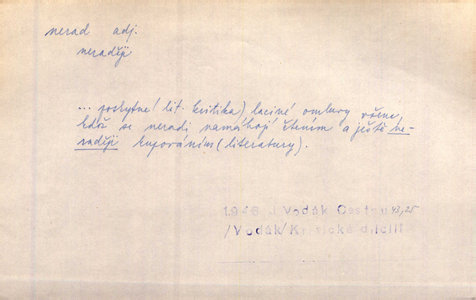 nerad adj.
neraději
... poskytne (lit. kritika) laciné omluvy všem,
kdož se neradi namáhají čtením a ještě ne-
raději kupováním (literatury).
1946 J Vodák Cestou 43,25
/Vodák/Kritické dílo II